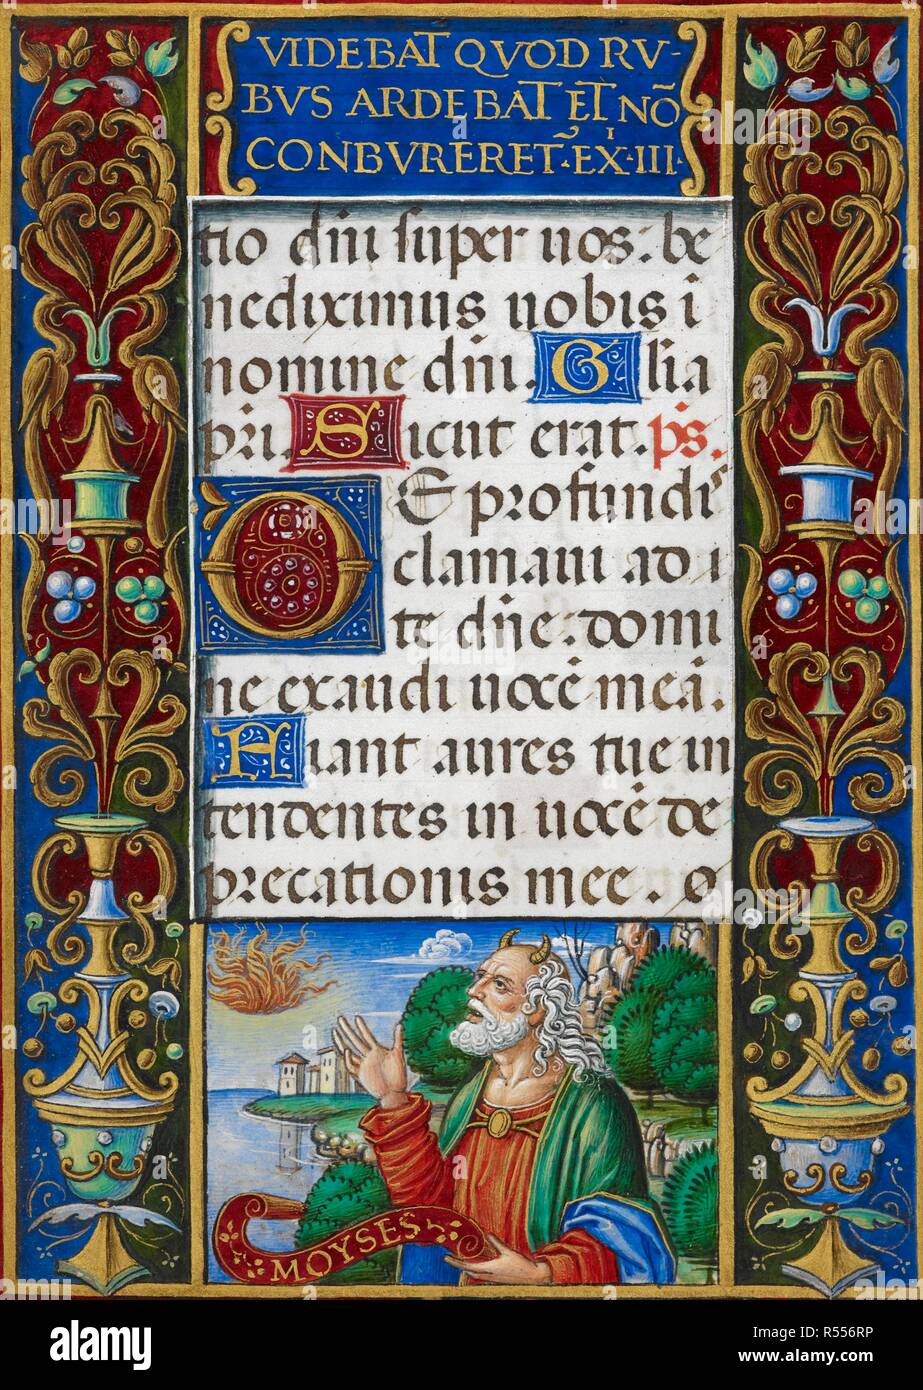 VIDEBAT QVOD RV-
BVS ARDEBAT ET NŌ
CONBVRERET̄·EX·III·
tio dn̄i super uos: be
nediximus uobis ī
nomine dn̄i. Gl̄ia
pr̄i. Sicut erat. ps̄.
DE profundis
clamaui ad
te dn̄e: domi
ne exaudi uocē meā.
Fiant aures tue in
tendentes in uocē de
precationis mee. O
MOYSES
alamy stock photo
Image ID: R556RP
www.alamy.com